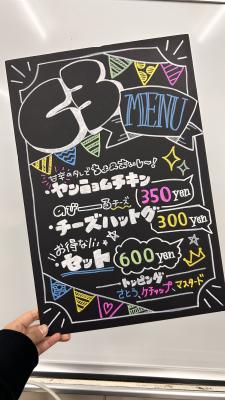 C3
MENU
甘辛のタレでちょーおいしー!
・ヤンニョムチキン
350yen
のびーーるチーズ
・チーズハットグ
300yen
お得な!!
セット
600yen
ートッピングー
さとう、ケチャップ、マスタード